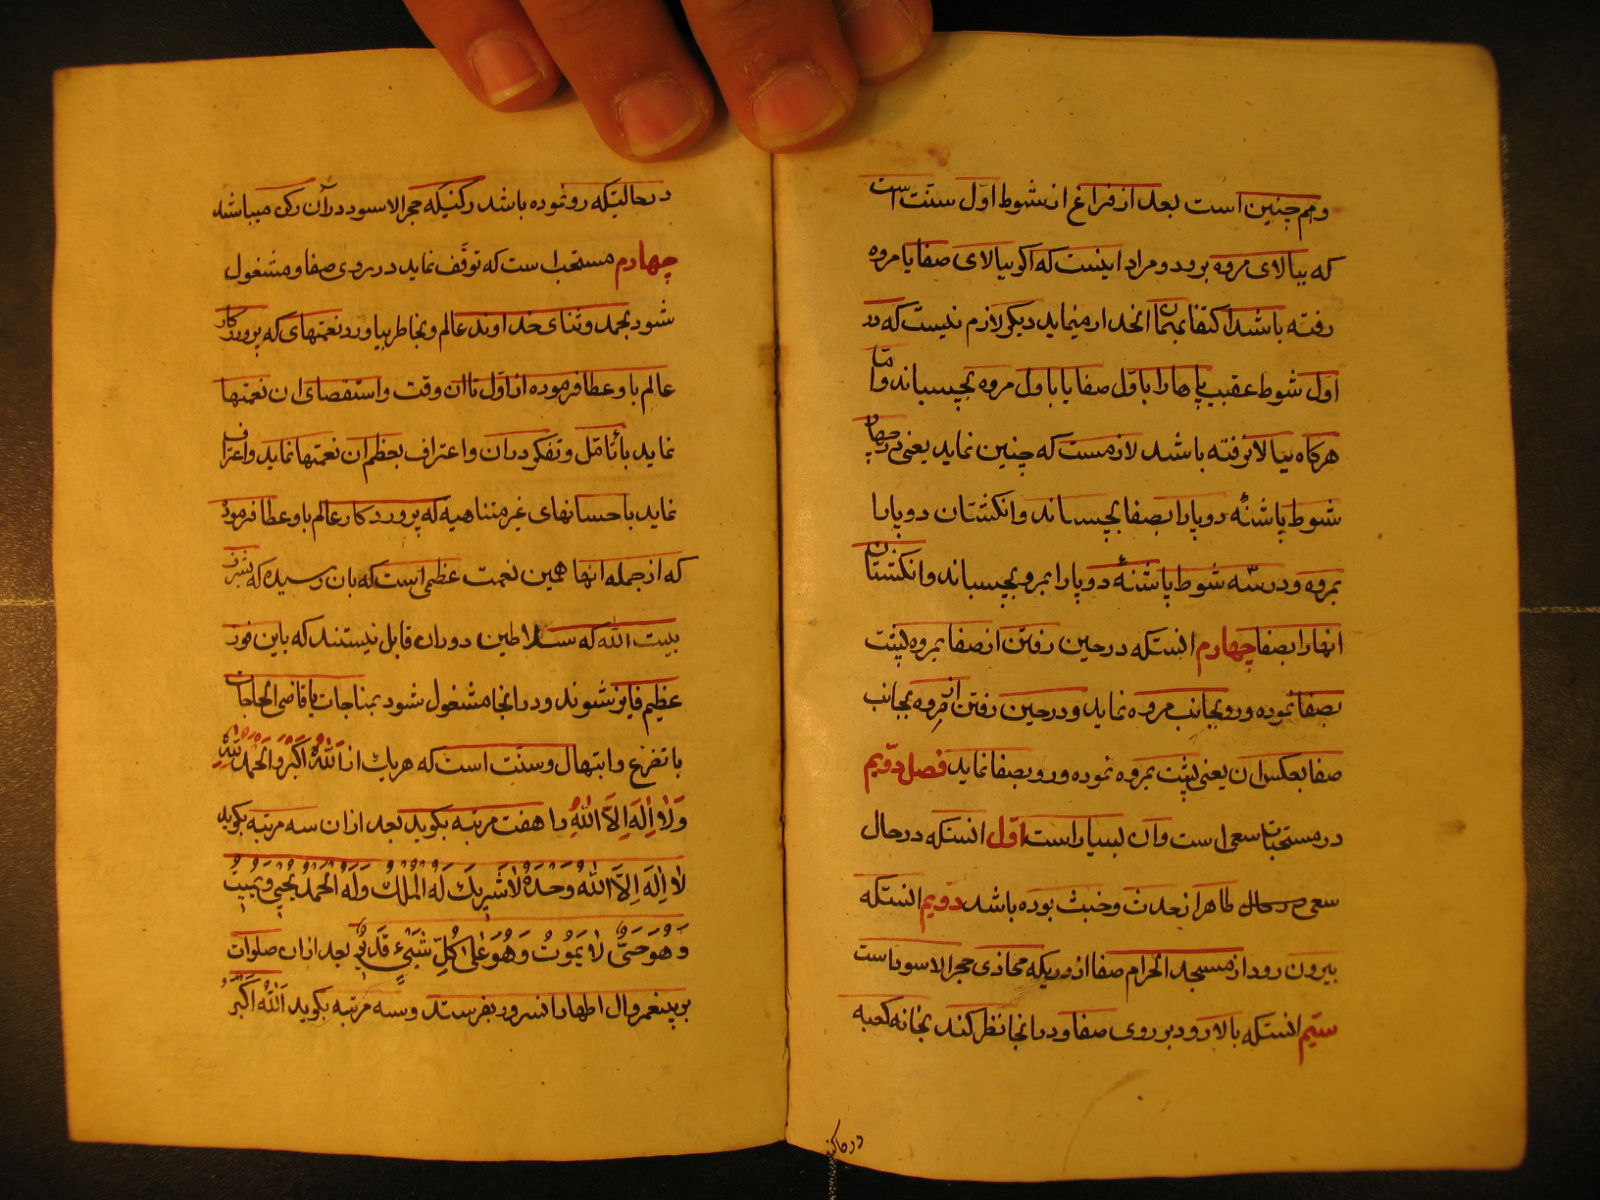 و هم چنین است بعد از فراغ از شوط اول سنت است
که ببالای مروه برود و مراد اینست که اکر ببالای صفا یا مروه
رفته باشد اکتفا بهمان انحدار مینماید دیکر لازم نیست که در
اول شوط عقب پاها را باول صفا یا باول مروه بچسباند و اما
هرکاه ببالا نرفته باشد لازمست که چنین نماید یعنی در چهار
شوط پاشنهٔ دو پا را بصفا بچسباند و انکشتان دو پا را
بمروه و در سه شوط پاشنهٔ دو پا را بمروه بچسباند و انکشتان
انها را بصفا چهارم انستکه در حین رفتن از صفا بمروه پشت
بصفا نموده و رو بجانب مروه نماید و در حین رفتن از مروه بجانب
صفا بعکس ان یعنی پشت بمروه نموده و رو بصفا نماید فصل دویم
در مستحبات سعی است و آن بسیار است اول انستکه در حال
سعی در حال طاهر از حدث و خبث بوده باشد دویم انستکه
بیرون رود از مسجد الحرام صفا از دریکه محاذی حجر الاسود است
سیم انستکه بالا رود بر روی صفا و در انجا نظر کند بخانه کعبه
در حالتیکه رو نموده باشد رکنیکه حجر الاسود در آن رکن میباشد
چهارم مستحب است که توقف نماید در بروی صفا و مشغول
شود بحمد و ثنای خداوند عالم و بخاطر بیاورد نعمتهای که پروردکار
عالم باو عطا فرموده از اول تا ان وقت و استقصای ان نعمتها
نماید با تأمل و تفکر در ان و اعتراف بعظم ان نعمتها نماید و اعتراف
نماید باحسانهای غیر متناهیه که پروردکار عالم باو عطا فرموده
که از جمله انها همین نعمت عظمی است که بان رسیده که تشرف
ببیت الله که سلاطین دوران قابل نیستند که باین فوز
عظیم فایز شوند و در انجا مشغول شود بمناجات با قاضی الحاجات
با تضرع و ابتهال و سنت است که هر یک از اَللهُ اَکْبَرُ وَ الْحَمْدُ لِلّهِ
وَ لا اِلهَ اِلاَّ اللهُ را هفت مرتبه بکوید بعد از ان سه مرتبه بکوید
لا اِلهَ اِلاَّ اللهُ وَحْدَهُ لا شَرِیکَ لَهُ لَهُ الْمُلْکُ وَ لَهُ الْحَمْدُ یُحْیِی وَ یُمِیتُ
وَ هُوَ حَیٌّ لا یَمُوتُ وَ هُوَ عَلی کُلِّ شَیْءٍ قَدِیرٌ بعد از ان صلوات
بر پیغمبر و ال اطهار انسرور بفرستد و سه مرتبه بکوید اَللهُ اَکْبَرُ